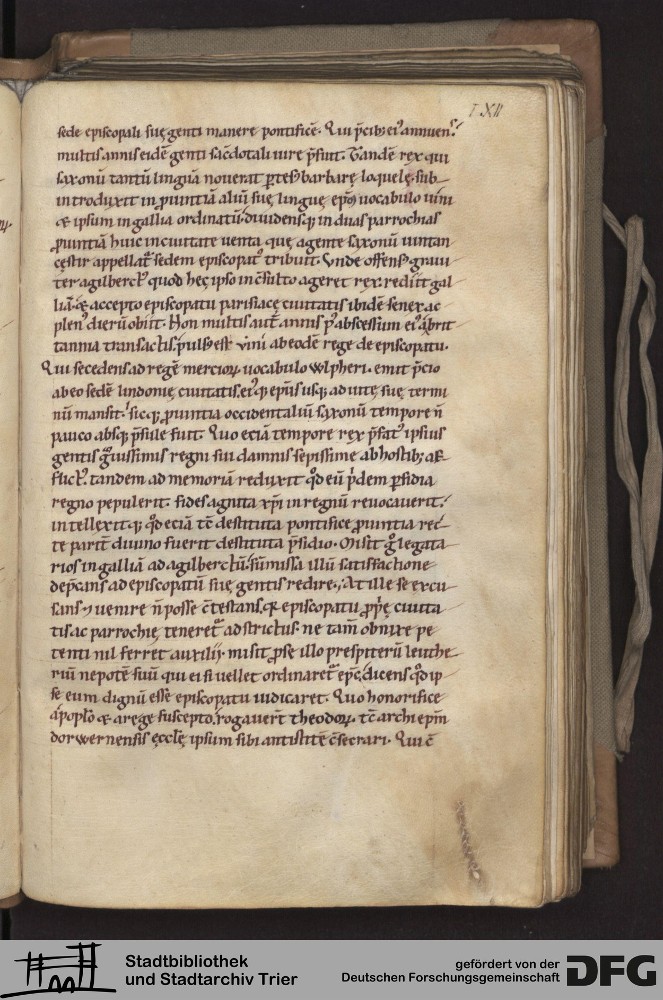 LXII
sede episcopali suę genti manere pontificē. Qui p̄cib; ei᷒ annuens
multis annis eidē genti sac̄dotali iure p̄fuit. Tandē rex qui
saxonū tantū linguā noverat ꝑtesus barbarę loquelę. sub
introduxit in ꝓuintiā aliū suę linguę ep̄m uocabulo uini
& ipsum in gallia ordinatū. diuidensq; in duas parrochias
ꝓuintiā huic in ciuitate uenta. quę a gente saxonū uintan
cęstir appellat᷑ sedem episcopat᷒ tribuit. Vnde offens᷒ graui
ter agilberct᷒ quod hęc ipso inc̄sulto ageret rex rediit gal
liā. & accepto episcopatu parisiacę ciuitatis ibidē senex ac
plen᷒ dierū obiit. Non multis aut̄ annis p᷒ abscessum ei᷒ a brit
tannia transactis. puls᷒ est uini ab eodē rege de episcopatu.
Qui secedens ad regē merciorꝝ uocabulo wlpheri. emit p̄cio
ab eo sedē lindonię ciuitatis. ei᷒q; ep̄us usq; ad uitę suę termi
nū mansit. sicq; ꝓuintia occidentaliū saxonū tempore n̄
pauco absq; p̄sule fuit. Quo eciā tempore rex p̄fat᷒ ipsius
gentis g̃uissimis regni sui damnis sepissime ab hostib; af
flict᷒. tandem ad memoriā reduxit qd̄ eū p̾dem ꝑfidia
regno pepulerit. fides agnita xp̄i in regnū revocaverit.
intellexitq; qd̄ eciā tc̄ destituta pontifice ꝓuintia rec
te parit̄ diuino fuerit destituta p̄sidio. Misit g̊ legata
rios in galliā ad agilberctū. sūmissa illū satisfactione
dep̄cans ad episcopatū suę gentis redire. At ille se excu
sans & uenire n̄ posse c̄testans. q episcopatu ꝓp̾ę ciuita
tis ac parrochię teneret᷑ adstrictus. ne tam̄ obnixe pe
tenti nil ferret auxilij. misit ꝓ se illo prespiterū leuthe
riū nepotē suū qui ei si uellet ordinaret᷑ ep̄c. dicens qd̄ ip
se eum dignū esse episcopatu iudicaret. Quo honorifice
a pop̄lo & a rege suscepto. rogauer̄t theodorꝝ. tc̄ archiep̄m
dorwernensis ęcclę̄ ipsum sibi antistitē c̄secrari. Qui c̄
Stadtbibliothek
und Stadtarchiv Trier
gefördert von der
Deutschen Forschungsgemeinschaft
DFG